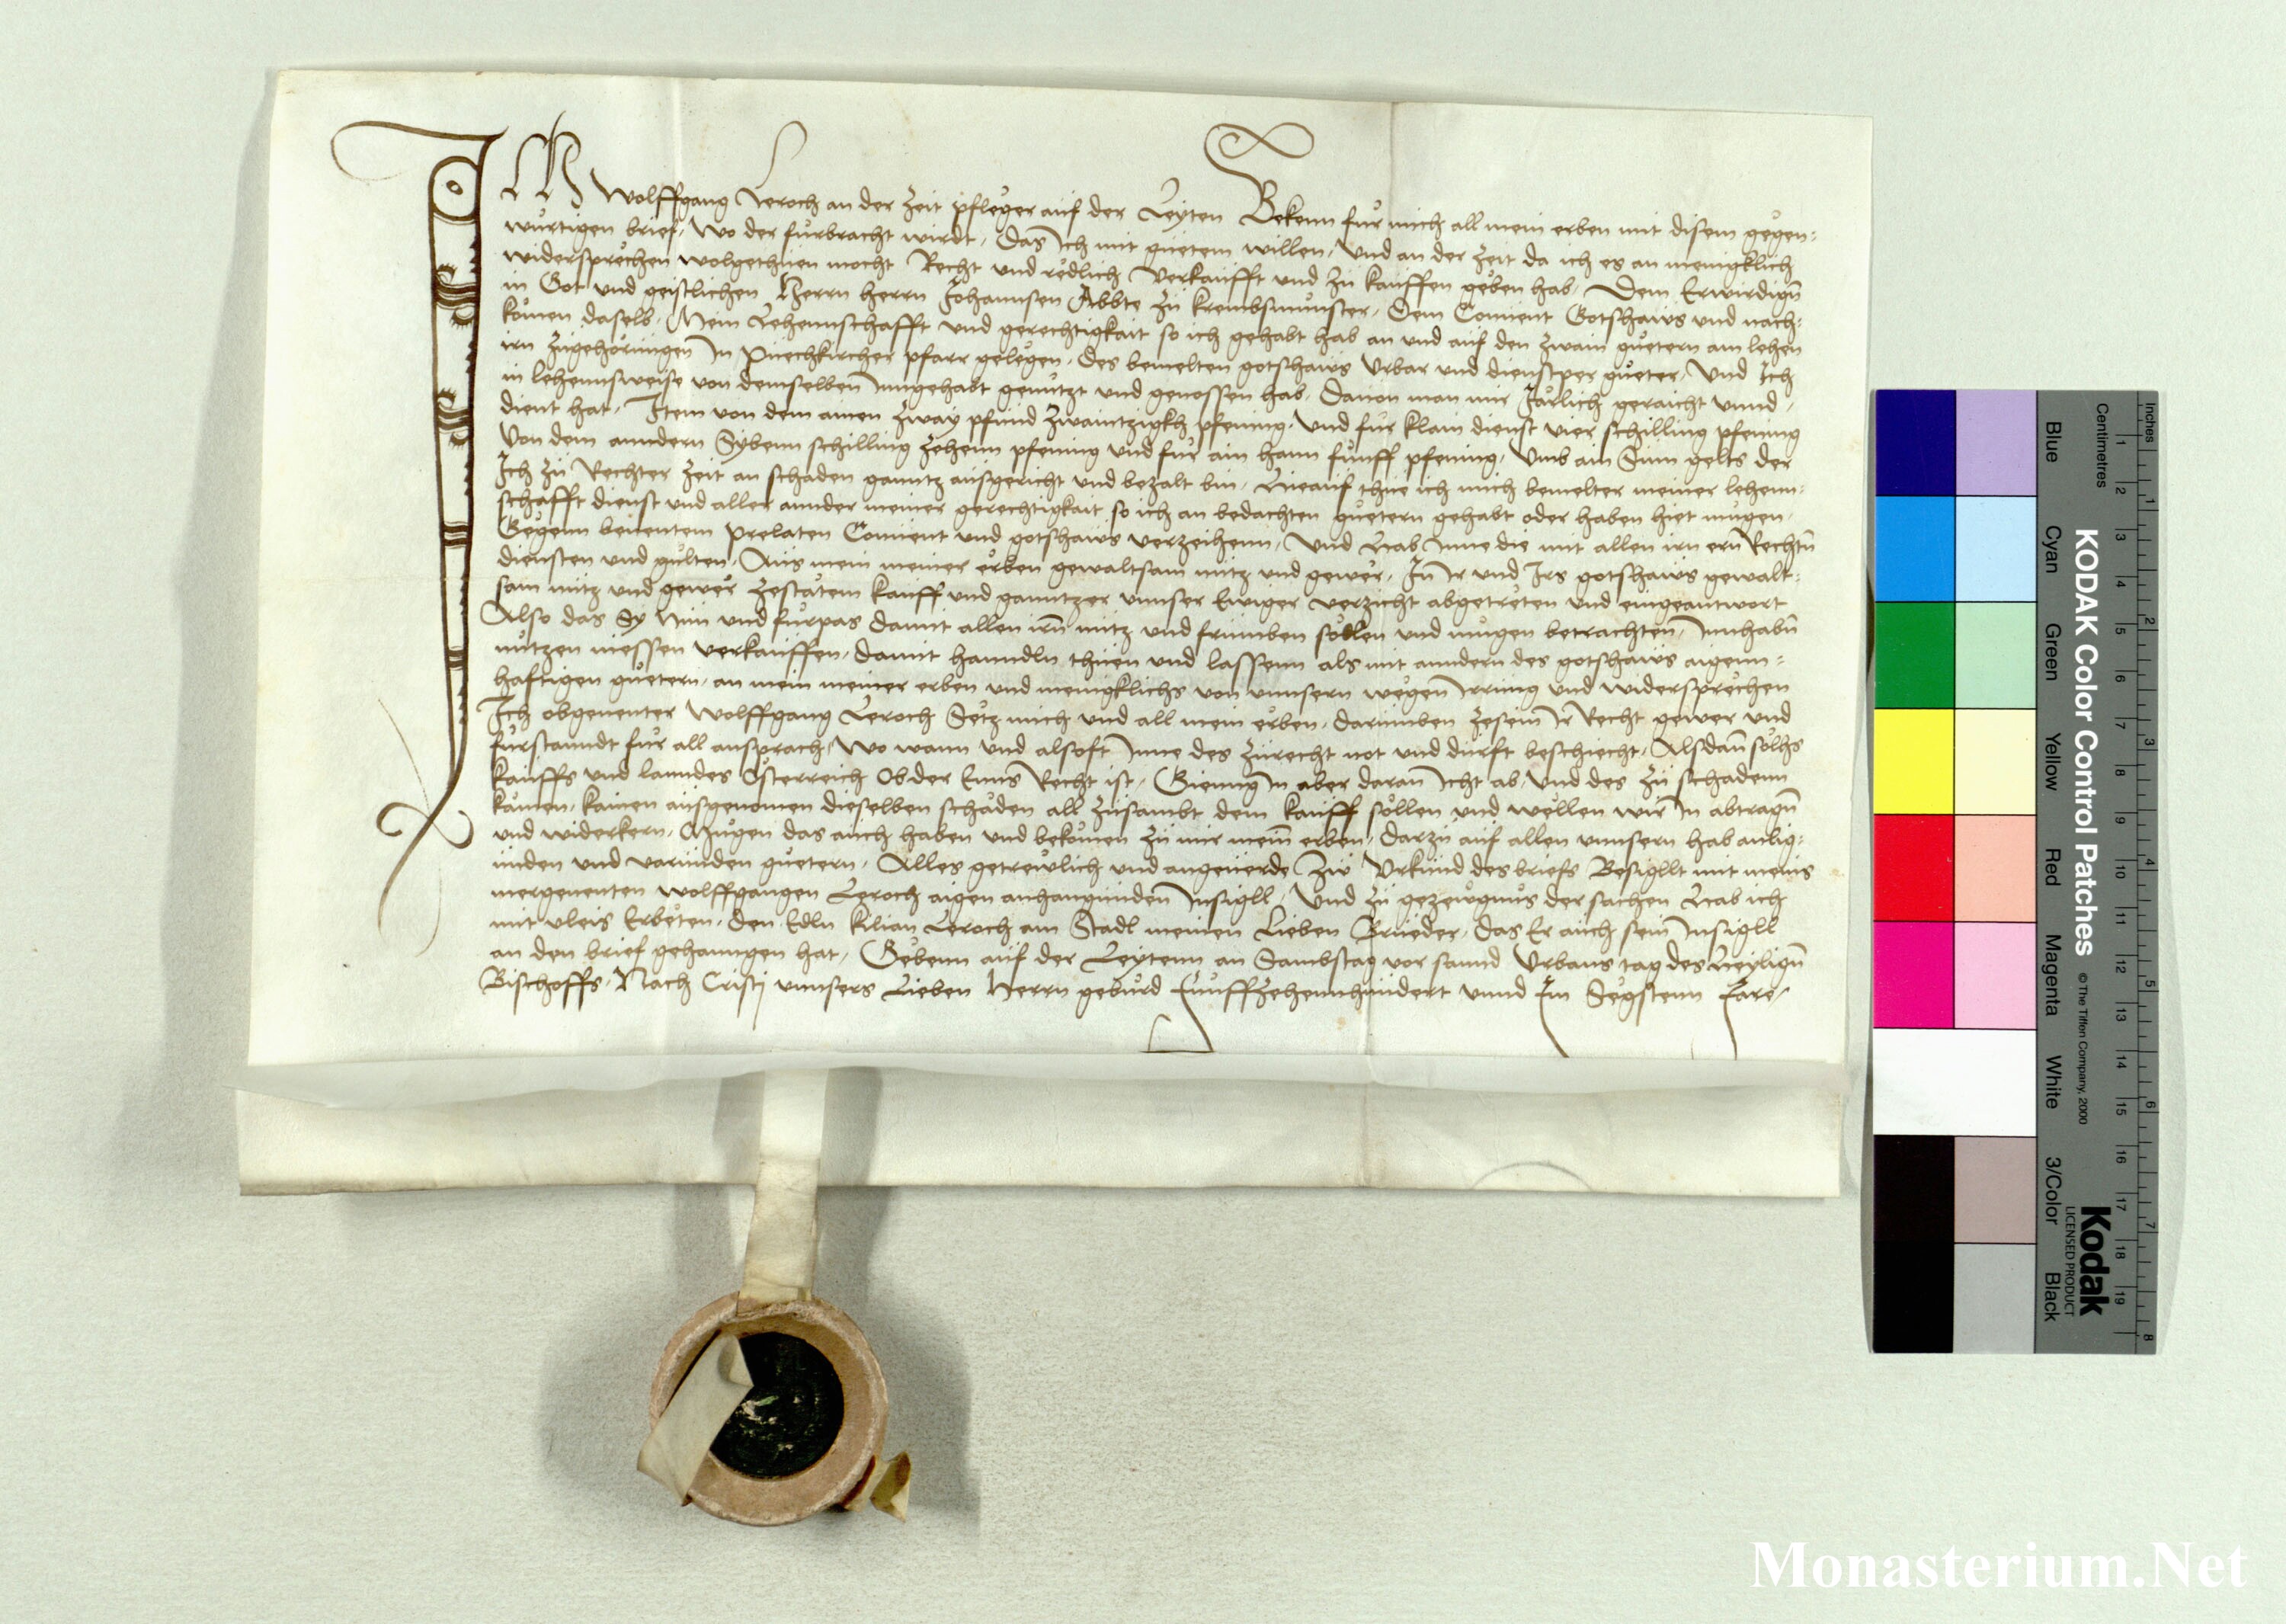 ICH Wolffganng Leroch an der Zeit pfleger auf der Leyten Bekenn für mich all mein erben mit disem gegen-
würtigen brief, Wo der fürbracht wirdt, Das Ich mit guetem willen, Und an der Zeit da ich es an menigklich
widersprechen wolgethuen mocht Recht und redlich Verkaufft und zu kauffen geben hab, Dem Erwirdigñ
in Got und geistlichen Herrn herrn Johannsen Abbte zu krembsmünster, Dem Conuent Gotshaws und nach-
komen daselb, Mein Lehennschafft und gerechtigkait so ich gehabt hab an und auf den zwain güetern am lehen
irn zugehorungen In Puechkircher pfarr gelegen, des bemelten gotshaws Urbar und dienstper güeter, Und Ich
in lehennsweise von demselben Inngehabt genützt und genossen hab, Dauon man mir Järlich geraicht unnd,
dient hat, Item von dem ainen zway pfund zwaintzigkh pfening, Und für klain dienst vier schilling pfening
Von dem anndern Sybenn schilling zehenn pfening und für ain hann fünff pfening, Umb ain Sum gelts der
Ich zu Rechter zeit an schaden ganntz ausgericht und bezalt bin, Hieauf thue ich mich bemelter meiner lehenn-
schafft dienst und aller annder meiner gerechtigkait so ich an bedachten güetern gehabt oder haben hiet mügen,
Gegenn benentem prelaten Conuent und gotshaws verzeihenn, Und Hab Inne die mit allen irn ern Rechtñ
diensten und gülten, Aus mein meiner erben gewaltsam nutz und gewer, In Ir und Irs gotshaws gewalt-
sam nutz und gewer zestätem kauff und ganntzer unnser Ewiger verzicht abgetreten und eingeantwort
Also das Sy Nun und fürpas damit allen irñ nutz und frumben sollen und mügen betrachten, Innhabñ
nützen niessen verkauffen, damit hanndln thuen und lassenn als mit anndern des gotshaws aigenn-
hafftigen güetern, an mein meiner erben und menigklichs von unnsern wegen Irrung und widersprechen
Ich obgenenter Wolffgang Leroch Setz mich und all mein erben, darumben zesein Ir Recht gewer und
fürstanndt für all ansprach, Wo wann und alsofft Inne des zurecht not und dürft beschiecht, Alsdañ solhs
kauffs und lanndes Österreich Ob der Enns Recht ist, Gieng In aber daran Icht ab, Und des zu schadenn
kämen, kainen ausgenomen dieselben schäden all zusambt dem kauff söllen und wellen wir In abtragñ
und widerkern, Mügen das auch haben und bekomen zu mir mein erben, darzu auf allen unnsern hab anlig-
unden und varunden güetern, Alles getrewlich und angeuerde Zw Urkund des briefs Besigllt mit meins
mergenenten Wolffgangen Leroch aigen anhangunden Insigll, Und zu gezewgnüs der sachen Hab ich
mit vleis Erbeten, den Edln Kilian Leroch am Stadl meinen Lieben Brueder, das Er auch sein Insigll
an den brief gehanngen hat, Gebenn auf der Leytenn an Sambstag vor sannd Urbans tag des Heyligñ
Bischoffs, Nach Cristj unnsers Lieben Herrn geburd Fünffzehennhundert unnd Im Segstenn Jare,
Inches
Centimetres
1 2 3 4 5 6 7 8 9 10 11 12 13 14 15 16 17 18 19
1 2 3 4 5 6 7 8
KODAK Color Control Patches © The Tiffen Company, 2000 Kodak
LICENSED PRODUCT
Blue Cyan Green Yellow Red Magenta White 3/Color Black
Monasterium.Net